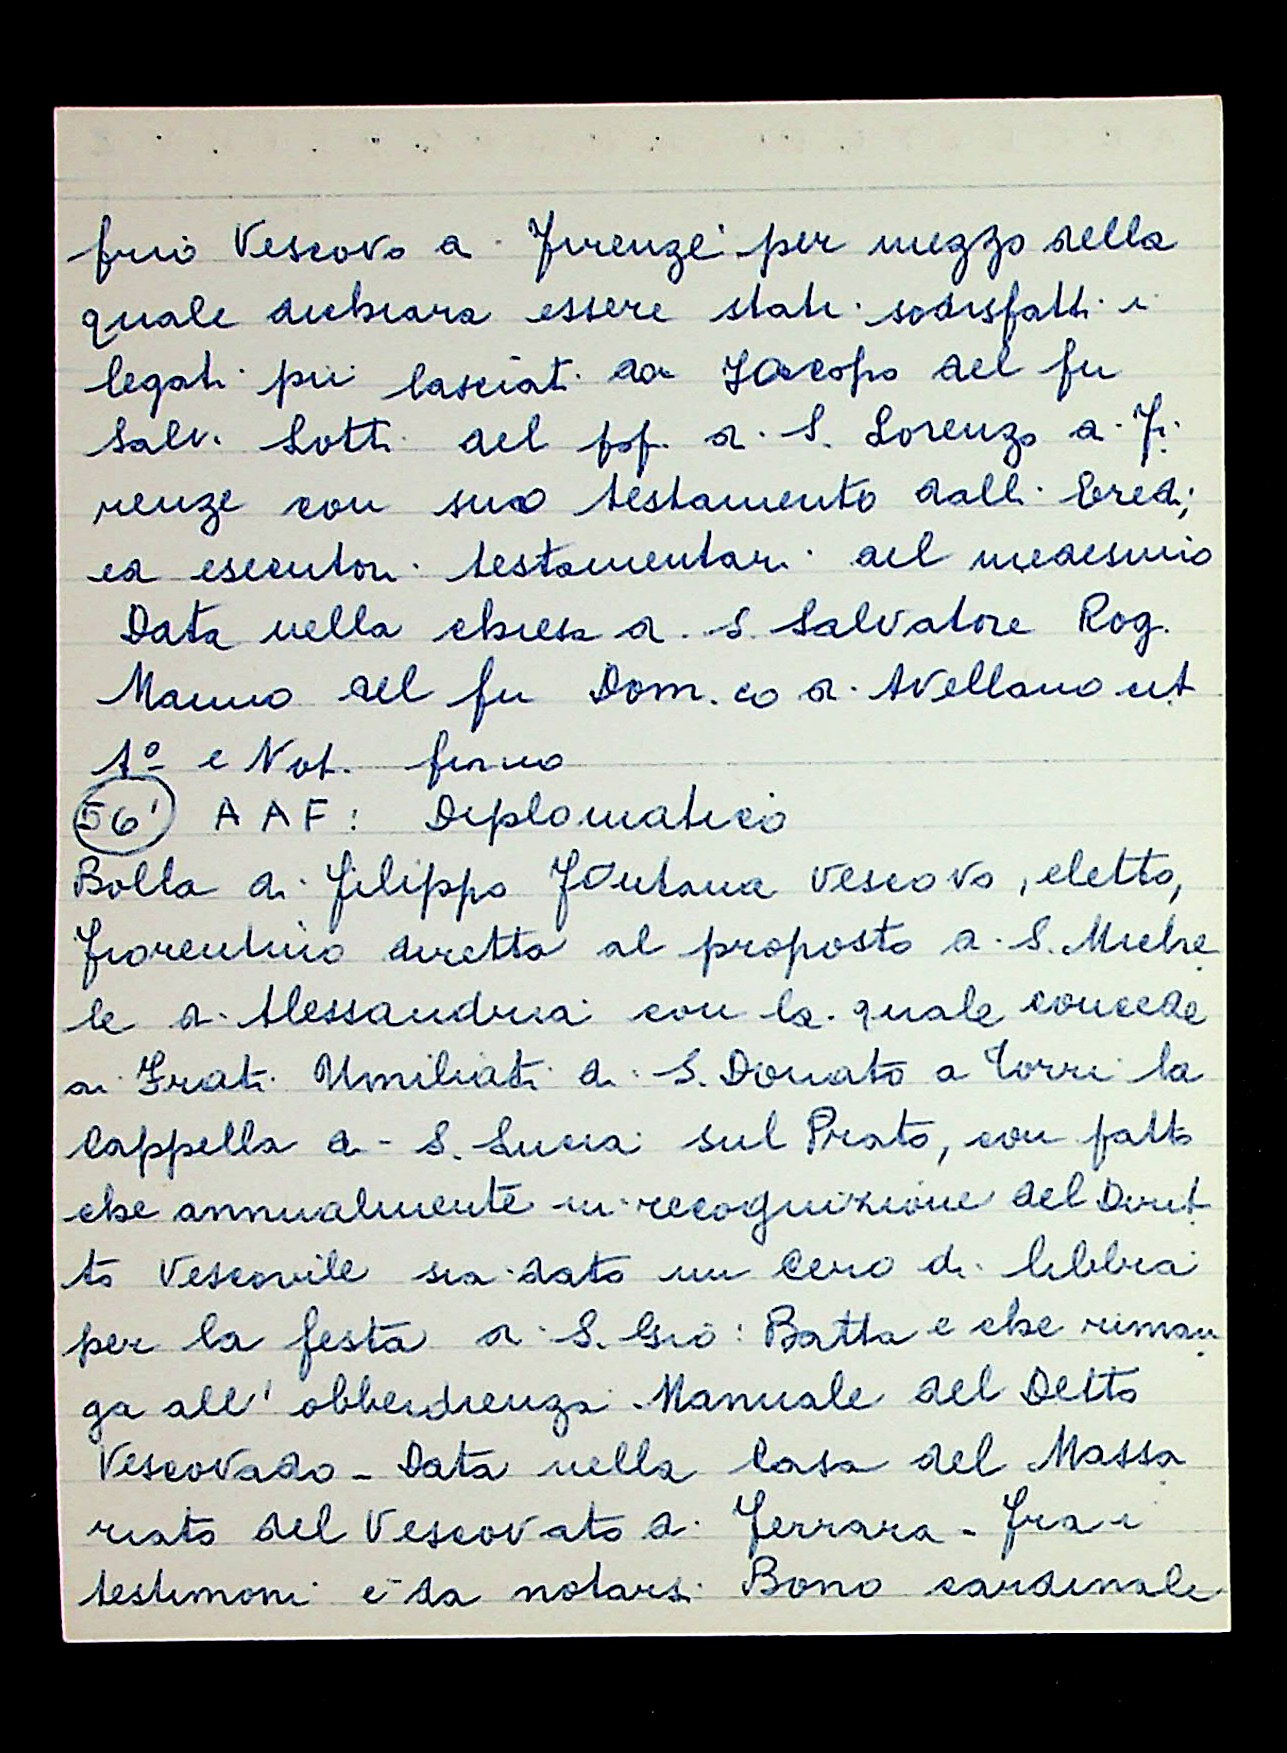 frio Vescovo di Firenze per mezzo della
quale dichiara essere stati sodisfatti i
legati pii lasciati da Jacopo del fu
Salv. Lotti del pop. di S. Lorenzo di Fi
renze con suo testamento dalli Eredi;
ed esecutori testamentari del medesimo
Data nella chiesa di S. Salvatore Rog.
Manno del fu Dom.co di Avellano cit
1º e Not. firmo
56' AAF: Diplomatico
Bolla di Filippo Fontana Vescovo, eletto,
Fiorentino diretta al proposto di S. Miche
le di Alessandria con la quale concede
ai Frati Umiliati di S. Donato a Torri la
Cappella di S. Lucia sul Prato, con patto
che annualmente in recognizione del Dirit
to Vescovile sia dato un Cero di libbra
per la festa di S. Gio: Batta e che riman
ga all' obbedienza Manuale del Detto
Vescovado - Data nella Casa del Massa
riato del Vescovato di Ferrara - Fra i
testimoni è da notarsi Bono cardinale